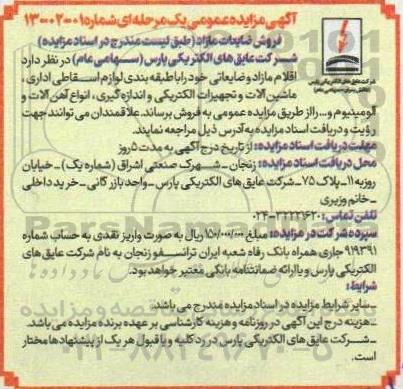 آگهی مزایده عمومی یک مرحله ای شماره ۰۱-۰۲-۱۳
فروش ضایعات مازاد (طبق لیست مندرج در اسناد مزایده)
شرکت عایق های الکتریکی پارس (سهامی عام) در نظر دارد
اقلام مازاد و ضایعاتی خود را با طبقه بندی لوازم اسقاطی اداری ،
ماشین آلات و تجهیزات الکتریکی و اندازه گیری ، انواع آهن آلات و
آلومینیوم و... را از طریق مزایده عمومی به فروش برساند. علاقمندان می توانند جهت
رؤیت و دریافت اسناد مزایده به آدرس ذیل مراجعه نمایند.
مهلت دریافت اسناد مزایده: از تاریخ درج آگهی به مدت ۵ روز
محل دریافت اسناد مزایده: زنجان _ شهرک صنعتی اشراق (شماره یک) _ خیابان
روزبه ۱۱ _ پلاک ۷۵ _ شرکت عایق های الکتریکی پارس _ واحد بازرگانی _ خرید داخلی
_ خانم وزیری
تلفن تماس: ۳۲۲۲۱۶۲۰-۰۲۴
سپرده شرکت در مزایده: مبلغ ۱۵۰/۰۰۰/۰۰۰ ریال به صورت واریز نقدی به حساب شماره
۹۱۹۳۹۱ جاری همراه بانک رفاه شعبه ایران ترانسفو زنجان به نام شرکت عایق های
الکتریکی پارس و یا ارائه ضمانتنامه بانکی معتبر خواهد بود.
شرایط:
_ سایر شرایط مزایده در اسناد مزایده مندرج می باشد.
_ هزینه درج این آگهی در روزنامه و هزینه کارشناسی بر عهده برنده مزایده می باشد.
_ شرکت عایق های الکتریکی پارس در رد کلیه و یا قبول هر یک از پیشنهادها مختار
است.
شرکت عایق های الکتریکی پارس